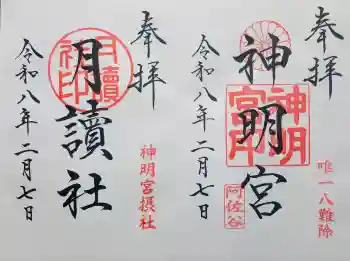 奉拝
唯一八難除
神明宮
神明宮印
阿佐谷
令和八年二月七日
奉拝
神明宮摂社
月讀社
月讀社印
令和八年二月七日